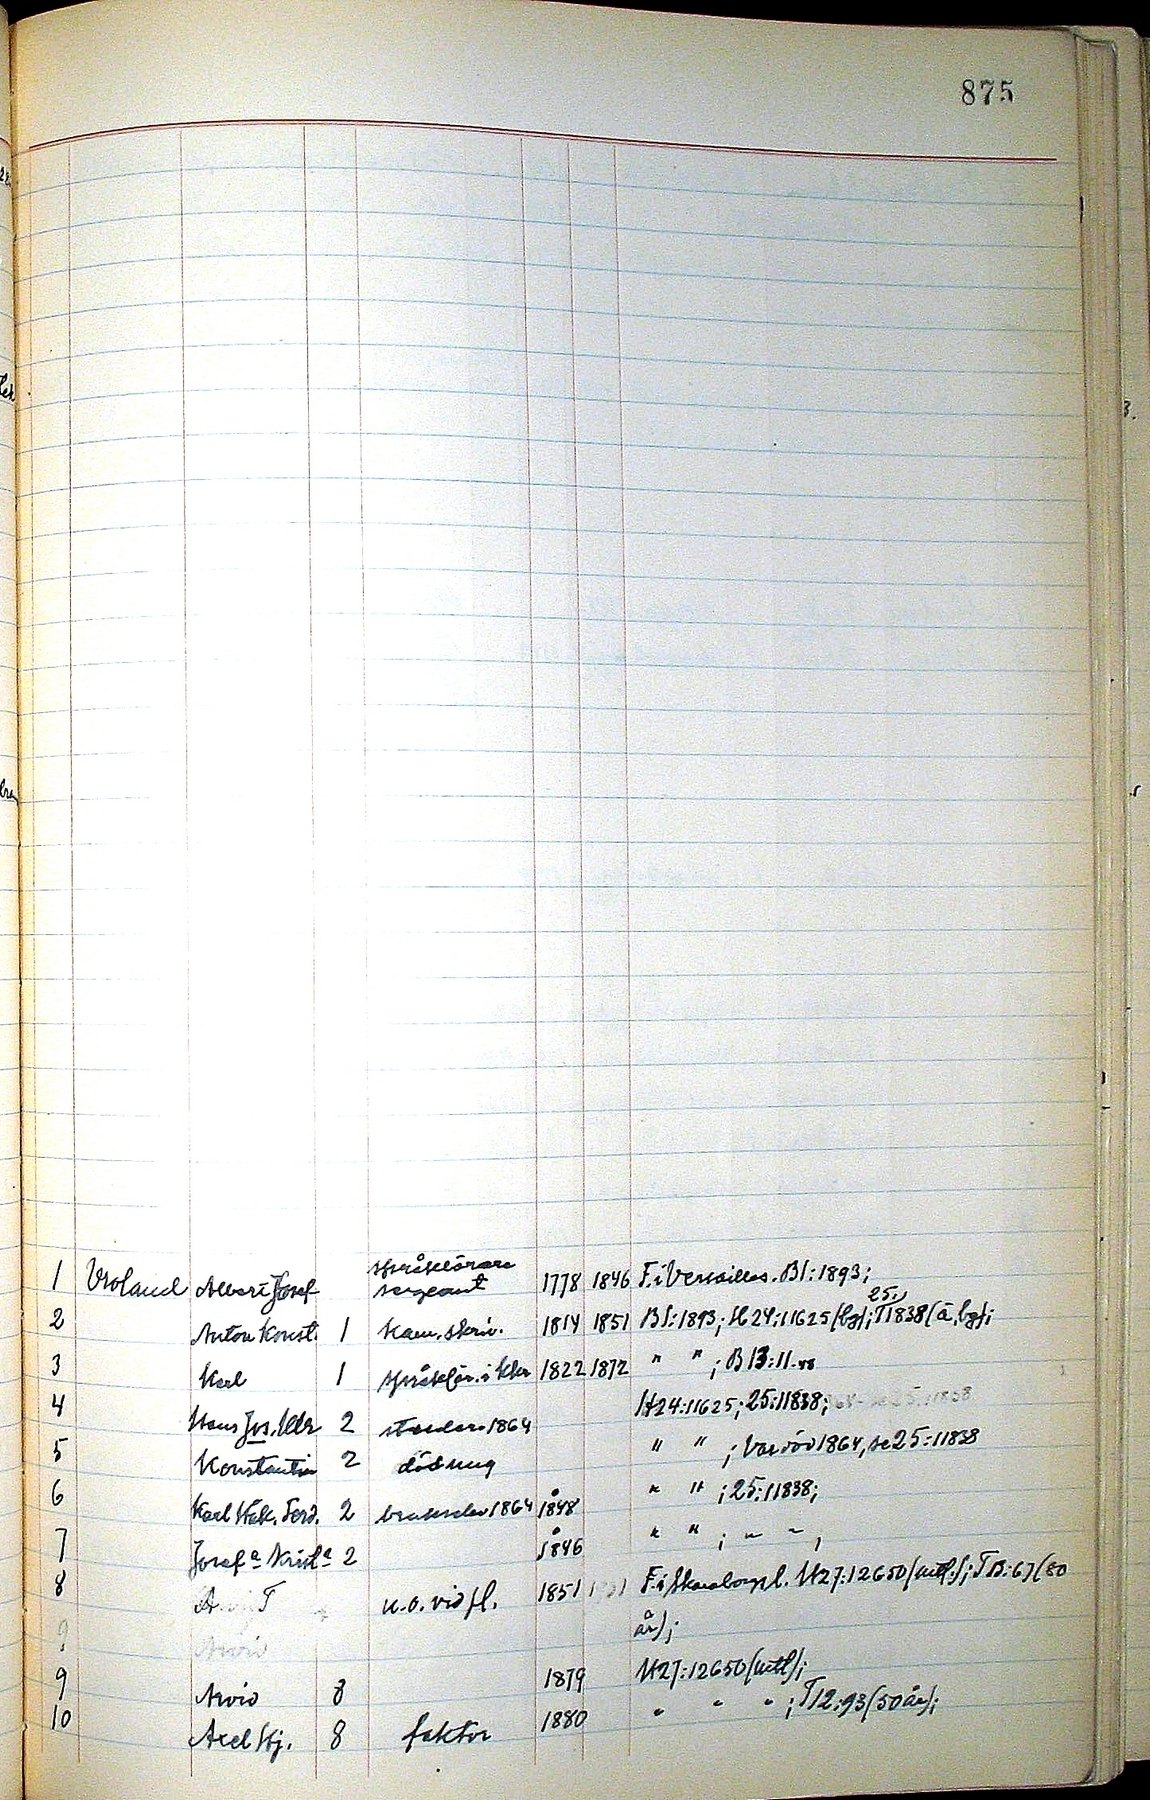 875
1 Vroland Albert Josef språklärare sergeant 1778 1846 F. i Versailles. B1:1893;
2 Anton Konst. 1 kam. skriv. 1814 1851 B1:1893; H24:11625 (bg); 25: T1838 (ä, bg);
3 Karl 1 språklär. i Kkr 1822 1872 " " ; B13:11.
4 Hans Jos. 2 1864 H24:11625; 25:11838;
5 Konstantin 2 död ung " " ; Var död 1864, se 25:11838
6 Karl Ferd. 2 1864 1848 " " ; 25:11838;
7 Josefa Krist:a 2 1846 " " ; " " ;
8 A T u.o. vid fl. 1851 F. i Skaraborgs l. H27:12650 (mtl.); T13:67 (80
år);
9 Arvid
9 Arvid 8 1879 H27:12650 (mtl);
10 Axel Hj. 8 faktor 1880 " " " ; T12:93 (50 år);